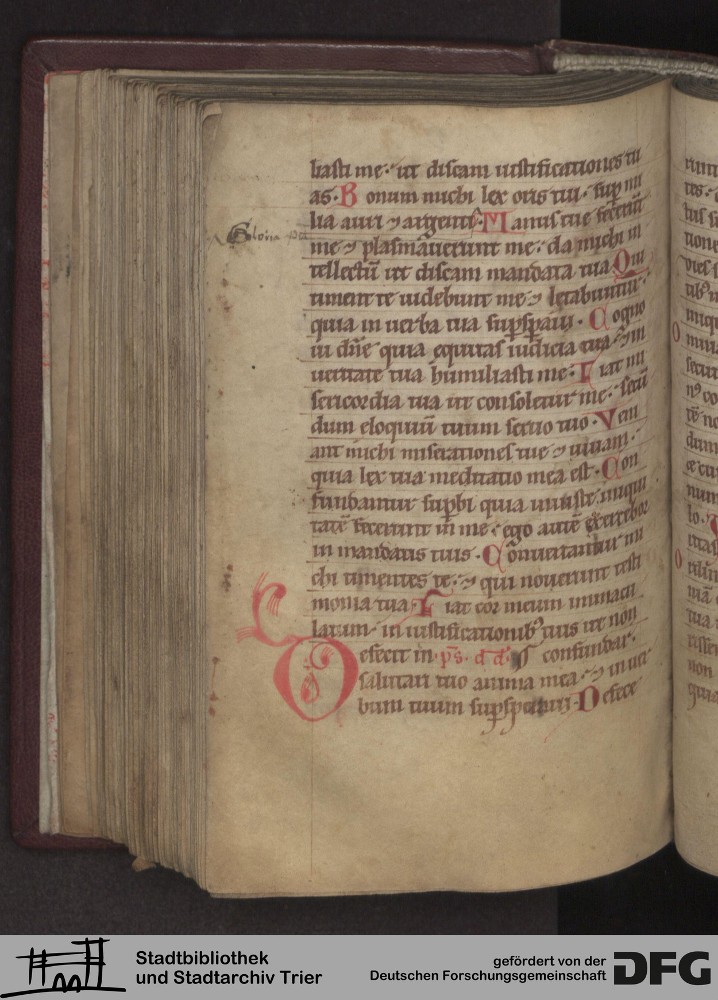 liasti me· ut discam iustificationes tu
as· Bonum michi lex oris tui· sup mi
lia auri ⁊ argenti· Manus tue fecerūt
Gloria pa
me ⁊ plasmauerunt me· da michi in
tellectū ut discam mandata tua Qui
timent te uidebunt me ⁊ letabuntur·
quia in uerba tua supsperaui· Cogno
ui dñe quia equitas iudicia tua· ⁊ in
ueritate tua humiliasti me· Fiat mi
sericordia tua ut consoletur me· secū
dum eloquiū tuum seruo tuo· Veni
ant michi miserationes tue ⁊ uiuam·
quia lex tua meditatio mea est· Con
fundantur supbi quia iniuste iniqui
tatē fecerunt in me· ego autē exercebor
in mandatis tuis· Conuertantur mi
chi timentes te· ⁊ qui nouerunt testi
monia tua· Fiat cor meum immacu
latum in iustificationib᷒ tuis ut non
confundar·
Defecit in ps. dd.
salutari tuo anima mea· ⁊ in uer
bum tuum supsperaui· Defece
Stadtbibliothek
und Stadtarchiv Trier
gefördert von der
Deutschen Forschungsgemeinschaft
DFG